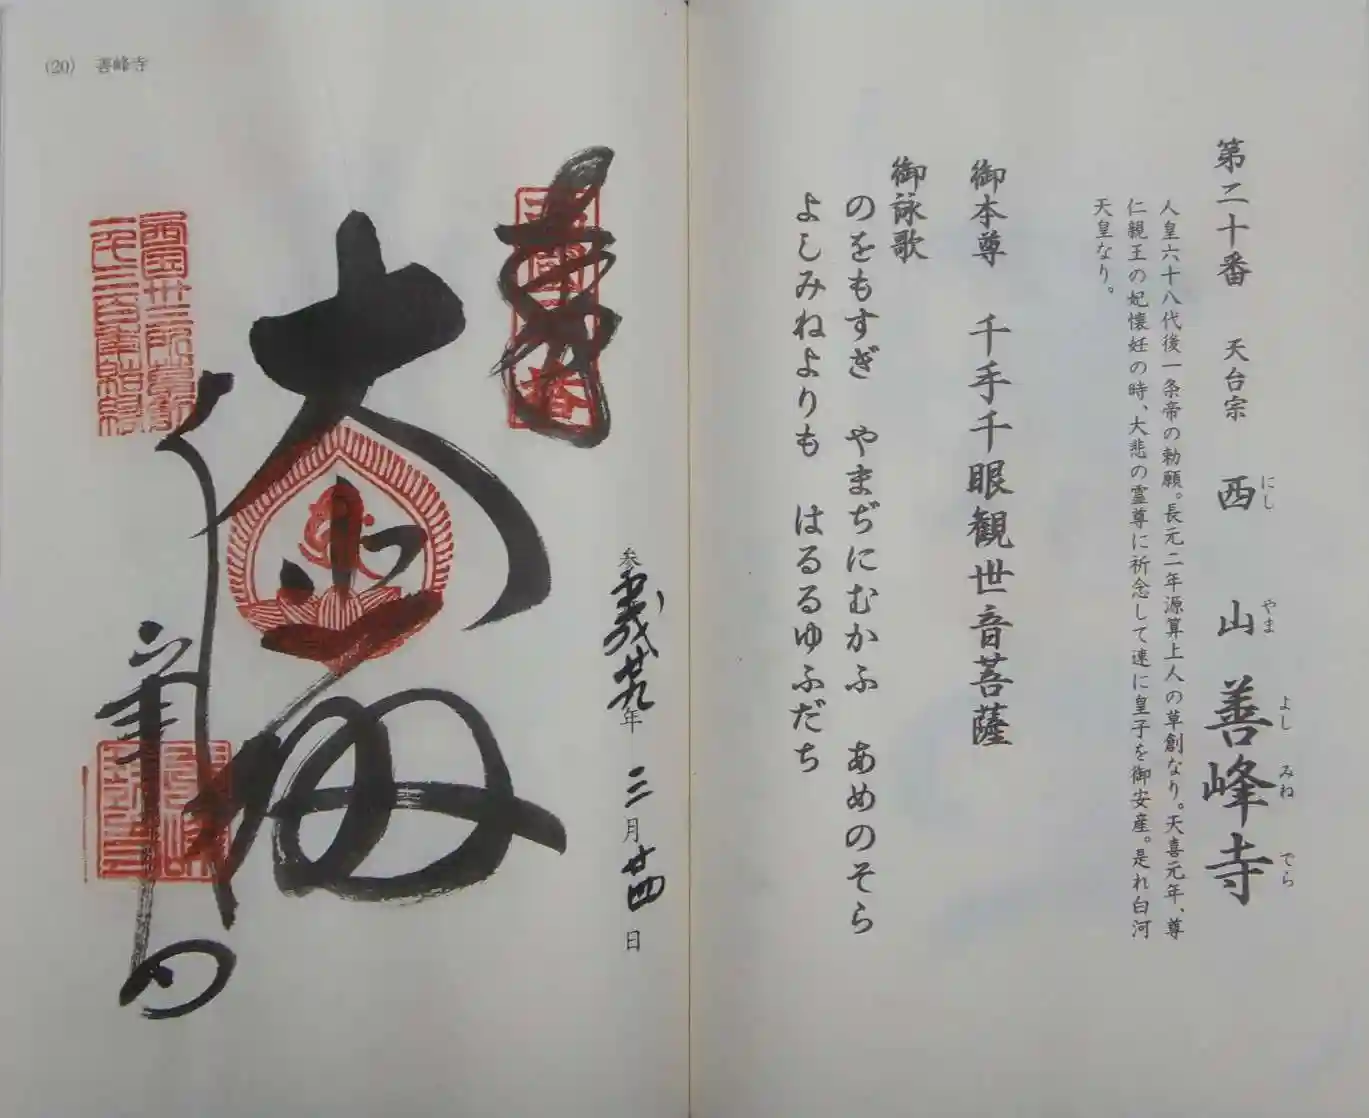 第二十番 天台宗 西山 善峰寺
にし やま よし みね でら
人皇六十八代後一条帝の勅願。長元二年源算上人の草創なり。天喜元年、尊
仁親王の妃懐妊の時、大悲の霊尊に祈念して速に皇子を御安産。是れ白河
天皇なり。
御本尊 千手千眼観世音菩薩
御詠歌
のをもすぎ やまぢにむかふ あめのそら
よしみねよりも はるるゆふだち
(20) 善峰寺
奉拝
参 廿九年 三月廿四日
大悲
西国卅三所草創
一千三百年記念